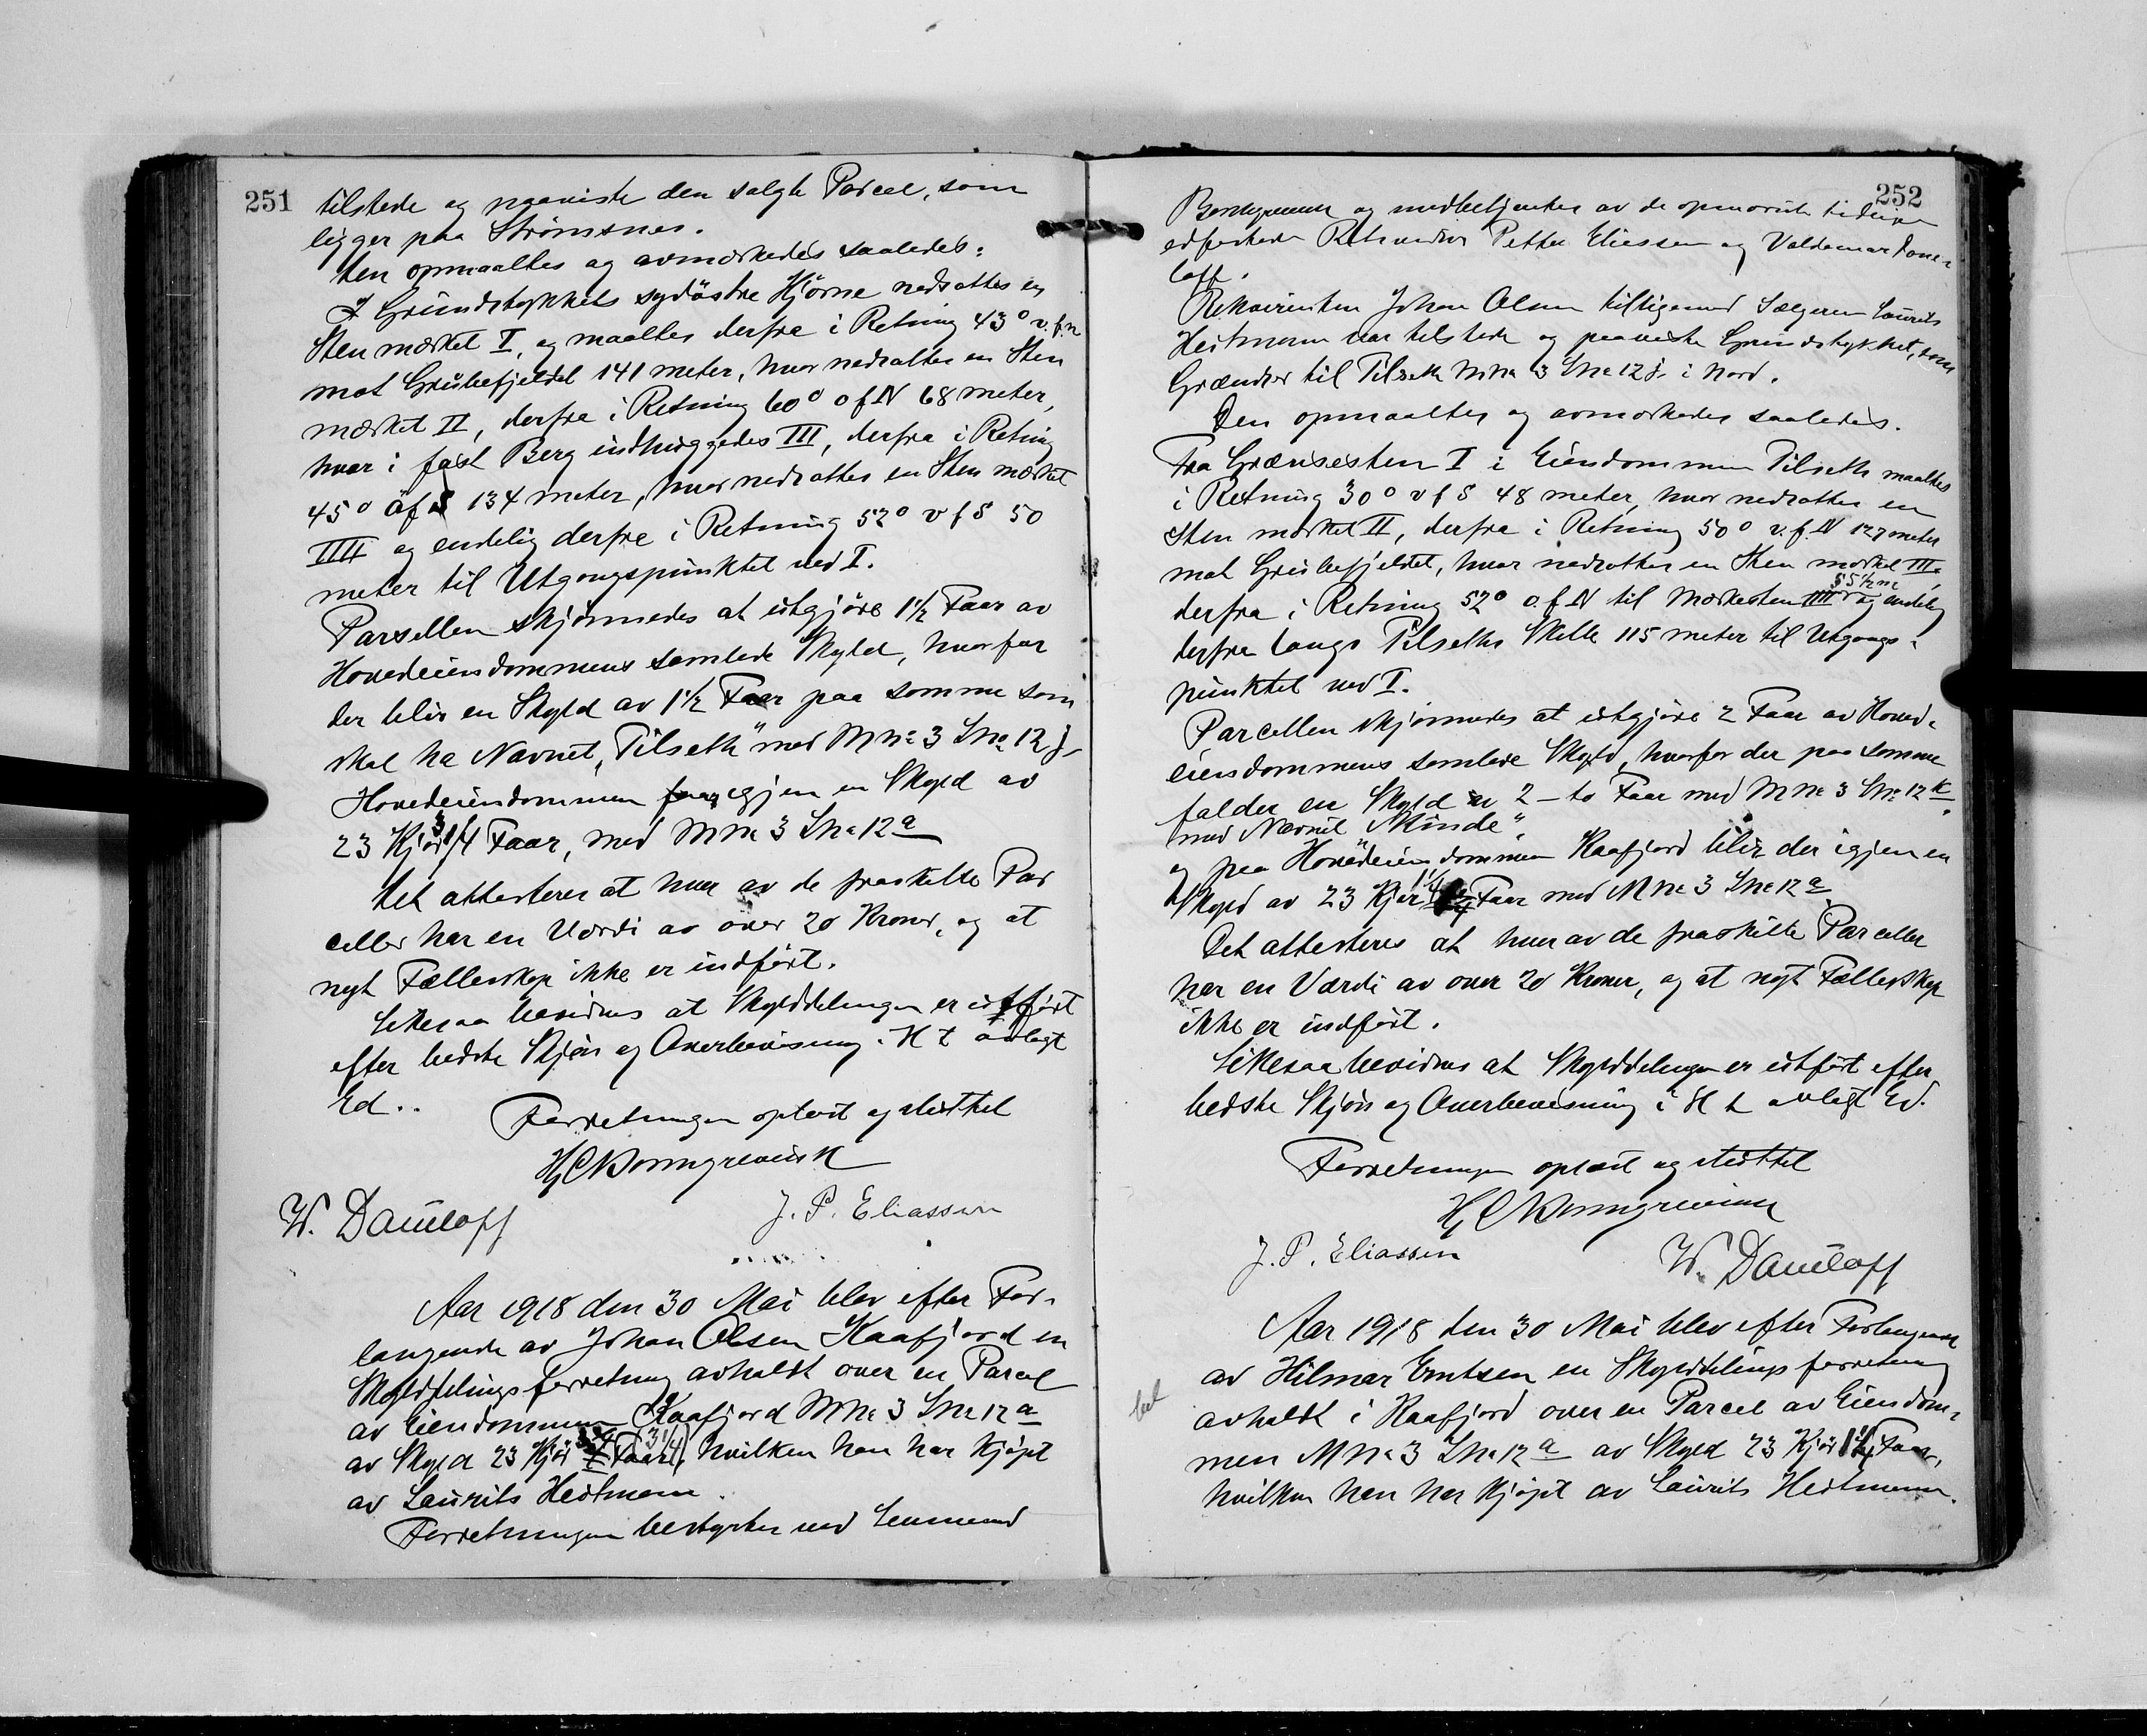 251
tilstede og paaviste den solgte Parcel, som
ligger paa Strömsnes.
Den opmaaltes og avmerkedes saaledes:
I Grundstykkets sydöstre Hjörne nedsattes en
Sten merket I, og maaltes derfra i Retning 43° v.f.n
mot Grubefjeldet 141 meter, hvor nedsattes en Sten
merket II, derfra i Retning 60° o f N 68 meter,
hvor i fast Berg indhuggedes III, derfra i Retning
45° ö f S 134 meter, hvor nedsattes en Sten merket
IIII og endelig derfra i Retning 52° v f S 50
meter til Utgangspunktet ved I.
Parsellen skjönnedes at utgjöre 1 1/2 Faar av
Hovedeiendommens samlede Skyld, hvorfor
der blir en Skyld av 1 1/2 Faar paa samme som
skal ha Navnet „Tilseth" med M no 3 L no 12 j.
Hovedeiendommen faar igjen en Skyld av
23 Kjör 3 1/4 Faar, med M no 3 L no 12 a
Det attesteres at hver av de fraskilte Par
celler har en Værdi av over 20 Kroner, og at
nyt Fælleskap ikke er indfört.
Likesaa bevidnes at Skylddelingen er utfört
efter bedste Skjön og Overbevisning i H t avlagt
Ed..
Forretningen oplæst og sluttet
H C Borngrevink
W. Daniloff
J. P. Eliassen
Aar 1918 den 30 Mai blev efter For-
langende av Johan Olsen Kaafjord en
Skylddelingsforretning avholdt over en Parcel
av Eiendommen Kaafjord M no 3 L no 12 a
av Skyld 23 Kjör Faar (3 1/4), hvilken han har kjöpt
av Laurits Heitmann.
Forretningen bestyrtes ved Lensmand
252
Borchgrevink og medbetjentes av de opnævnte tidligere
edfestede Retsvidner Petter Eliassen og Valdemar Dani-
loff.
Rekvirenten Johan Olsen tilligemed Sælgeren Laurits
Heitmann var tilstede og paaviste Grundstykket, som
Grændser til Tilseth M no 3 L no 12 j. i nord.
Den opmaaltes og avmerkedes saaledes.
Fra Grænsesten I i Eiendommen Tilseth maaltes
i Retning 30° v f S 48 meter, hvor nedsattes en
Sten merket II, derfra i Retning 50° v. f. N 127 meter
mot Grubefjeldet, hvor nedsattes en Sten merket III,
derfra i Retning 52° o. f N til Merkesten IIII 55 1/2 m og endelig
derfra langs Tilseths Skille 115 meter til Utgangs-
punktet ved I.
Parcellen skjönnedes at utgjöre 2 Faar av Hoved-
eiendommens samlede Skyld, hvorfor der paa samme
falder en Skyld av 2 - to Faar med M no 3 L no 12 k
med Navnet „Minde".
og paa Hovedeiendommen Kaafjord blir der igjen en
Skyld av 23 Kjör 1 1/4 Faar med M no 3 L no 12 a.
Det attesteres at hver av de fraskilte Parceller
har en Værdi av over 20 Kroner, og at nyt Fælleskap
ikke er indfört.
Likesaa bevidnes at Skylddelingen er utfört efter
bedste Skjön og Overbevisning i H t avlagt Ed.
Forretningen oplæst og sluttet
H C Borngrevink
J. P. Eliassen
W. Daniloff
Aar 1918 den 30 Mai blev efter Forlangende
av Hilmar Erntsen en Skylddelingsforretning
avholdt i Kaafjord over en Parcel av Eiendom-
men M no 3 L no 12 a av Skyld 23 Kjör 1 1/4 Faar,
hvilken han har kjöpt av Laurits Heitmann.